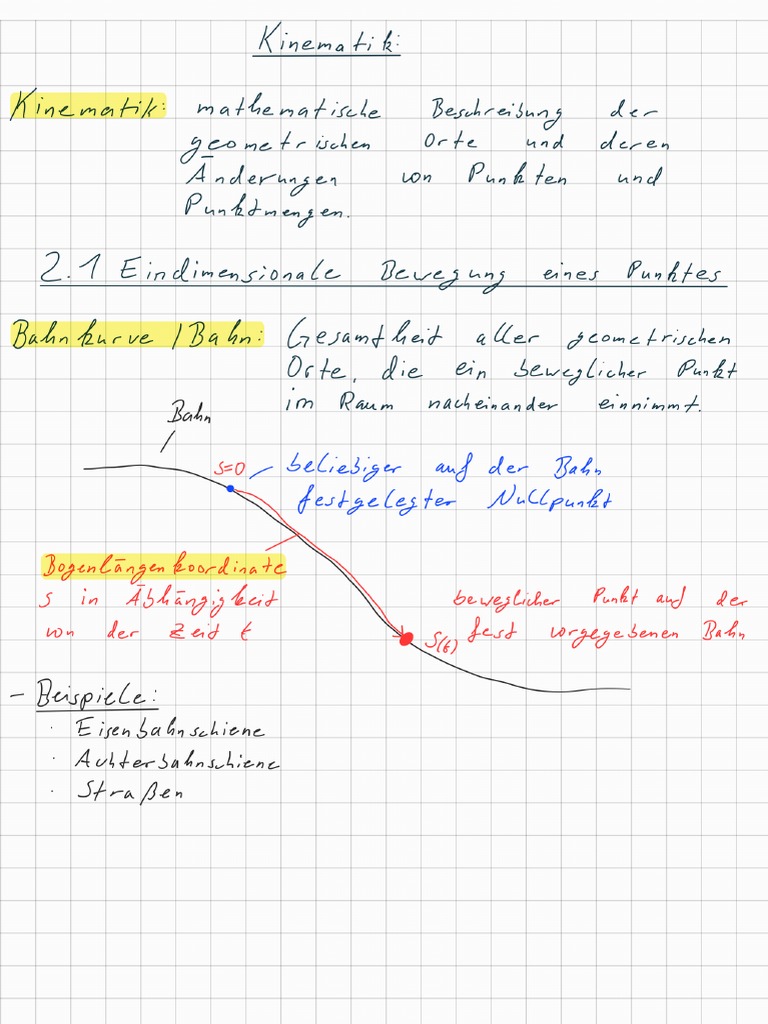 Kinematik:
Kinematik: mathematische Beschreibung der
geometrischen Orte und deren
Änderungen von Punkten und
Punktmengen.
2.1 Eindimensionale Bewegung eines Punktes
Bahnkurve / Bahn: Gesamtheit aller geometrischen
Orte, die ein beweglicher Punkt
im Raum nacheinander einnimmt.
Bahn
s=0
beliebiger auf der Bahn
festgelegter Nullpunkt
Bogenlängenkoordinate
s in Abhängigkeit
von der Zeit t
beweglicher Punkt auf der
fest vorgegebenen Bahn
S(t)
- Beispiele:
· Eisenbahnschiene
· Achterbahnschiene
· Straßen